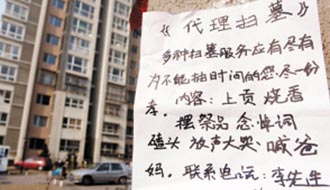 《代理扫墓》
多种扫墓服务应有尽有
为不能抽时间的您尽一份
孝。内容：上贡 烧香
摆祭品 念悼词
磕头 放声大哭 喊爸
妈。联系电话：李先生